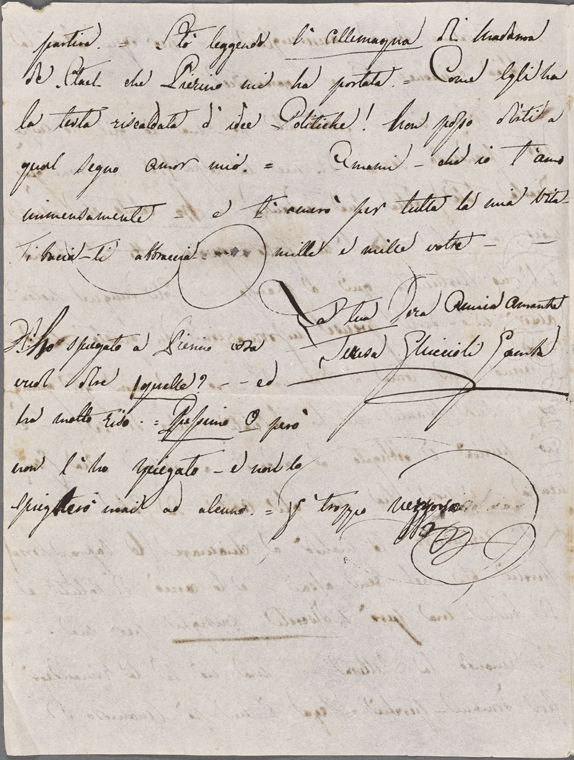 partire. = Stò leggendo l'allemagna di Madama
de Stael che Pierino mi ha portata. = Come Egli ha
la testa riscaldata d'idee Politiche! Non posso dirti a
qual segno amor mio. = Amami - che io t'amo
immensamente e t'amerò per tutta la mia vita -
Ti bacia - ti abbraccia mille e mille volte -
La tua Vera Amica amante
Teresa Guiccioli Gamba
Ho spiegato a Pierino cosa
vuol dire quelle? - - ed
ha molto riso. = O però
non l'ho spiegato - e non lo
spiegherò mai ad alcuno = troppo vezzoso